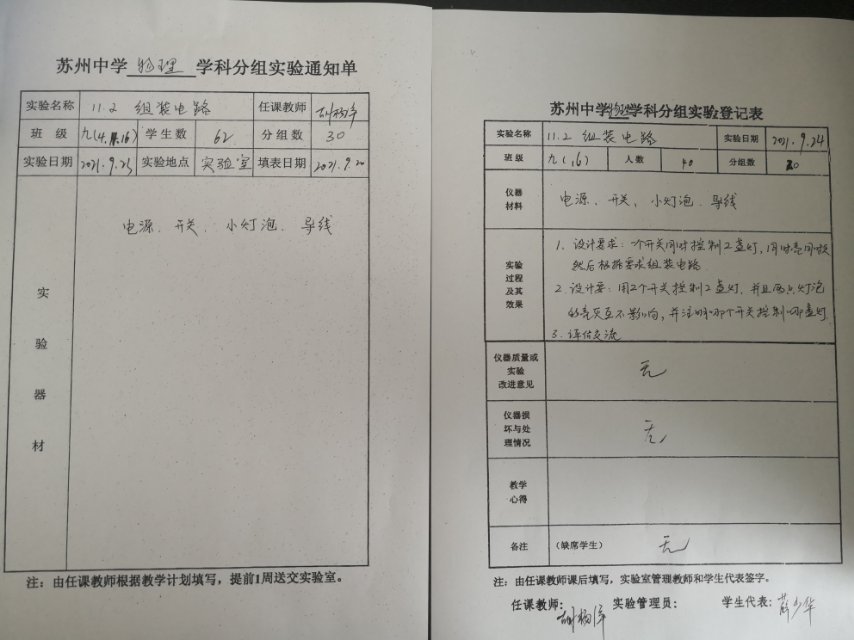 苏州中学 物理 学科分组实验通知单
实验名称 11.2 组装电路 任课教师
班 级 九(4. 16) 学生数 62 分组数 30
实验日期 2021.9.23 实验地点 实验室 填表日期 2021.9.20
实验器材 电源、开关、小灯泡、导线
注：由任课教师根据教学计划填写，提前1周送交实验室。
苏州中学物理学科分组实验登记表
实验名称 11.2 组装电路 实验日期 2021.9.24
班 级 九(16) 人 数 分组数 30
仪器材料 电源、开关、小灯泡、导线
实验过程及其效果 1. 设计要求：一个开关同时控制2盏灯，同时亮同时
然后根据要求组装电路
2. 设计要：用2个开关控制2盏灯，并且两只灯泡
的亮灭互不影响，并注明哪个开关控制哪盏灯
3. 评估交流
仪器质量或实验改进意见 无
仪器损坏与处理情况 无
教学心得
备注 (缺席学生) 无
注：由任课教师课后填写，实验室管理教师和学生代表签字。
任课教师： 实验管理员： 学生代表：